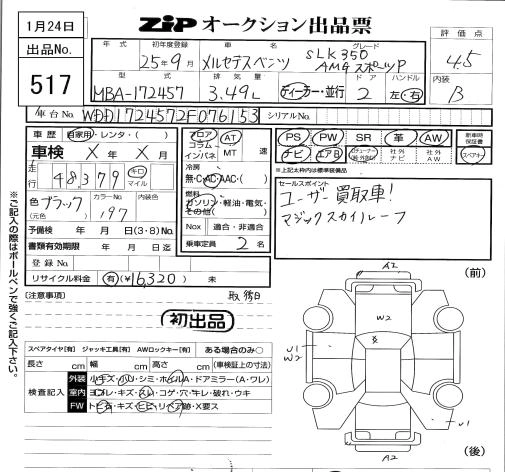 1月24日
ZiP オークション出品票
出品No.
517
年式
初年度登録 25年9月
車名 メルセデスベンツ
グレード SLK350 AMGスポーツP
評価点 4.5
型式 MBA-172457
排気量 3.49L
ディーラー・並行
ドア 2
ハンドル 左・右
内装 B
車台No. WDD1724572F076153
シリアルNo.
車歴 自家用・レンタ・( )
車検 × 年 × 月
走行 48,379 キロ マイル
色 ブラック (元色)
カラーNo. 197
内装色
予備検 年 月 日(3・8)No.
書類有効期限 年 月 日迄
登録No.
リサイクル料金 有(¥16,320) 未
フロア コラム インパネ
AT MT 速
冷房 無・C・AC・AAC・( )
燃料 ガソリン・軽油・電気・その他( )
Nox 適合・非適合
乗車定員 2 名
PS PW SR 革 AW
ナビ エアB 社外ナビ 社外AW
新車時保証書
スペアキー
※上記太枠内は標準装備品
セールスポイント
ユーザー買取車!
マジックスカイルーフ
※ご記入の際はボールペンで強くご記入下さい。
(注意事項)
取 後日
初出品
スペアタイヤ[有] ジャッキ工具[有] AWロックキー[有] ある場合のみ○
長さ cm 幅 cm 高さ cm (車検証上の寸法)
検査記入
外装 小キズ・小凹・シミ・ホイルA・ドアミラー(A・ワレ)
室内 ヨゴレ・キズ・スレ・コゲ・穴・キレ・破れ・ウキ
FW トビ石・キズ・ヒビ・リペア跡・X要ス
A2
(前)
W2
U1
W2
U1
A2
(後)